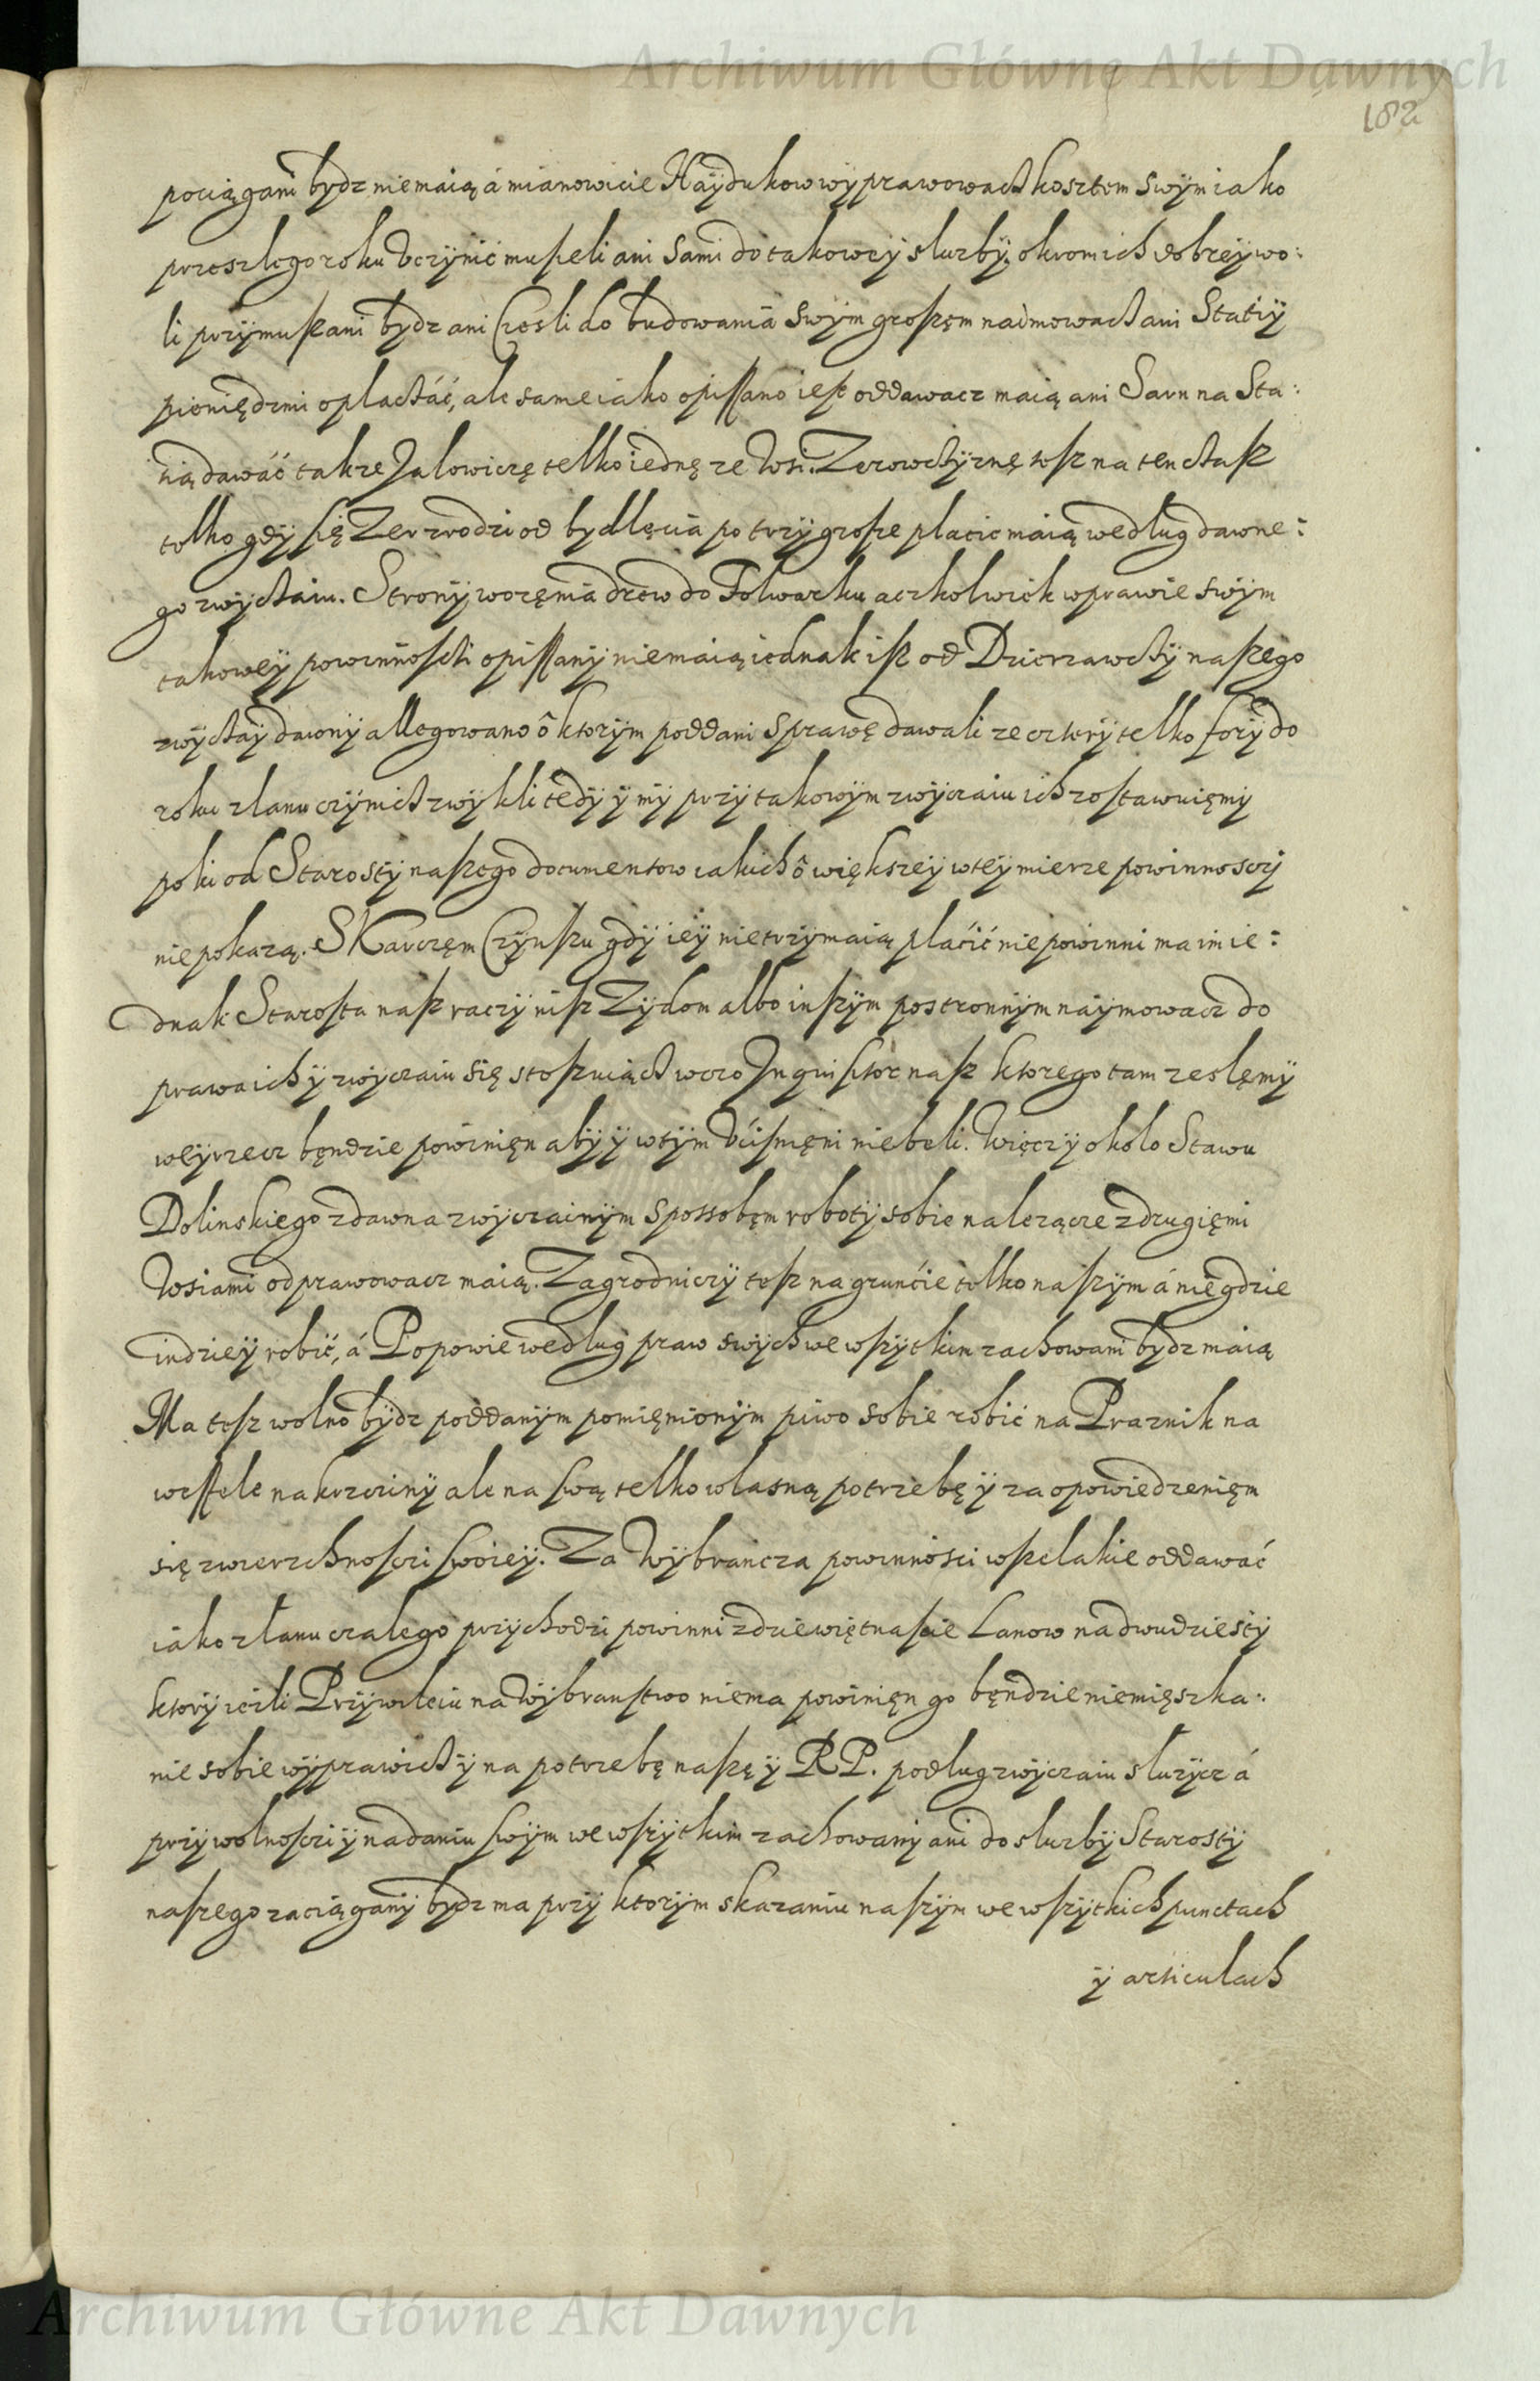 Archiwum Główne Akt Dawnych
182
pociągani bydz niemaią á mianowicie Haÿdukow wÿprawowach kosztem swÿm iako
przeszlego roku Vczÿnić muſieli ani sami do takoweÿ sluzbÿ, okrom ich dobreÿ wo:
li przÿmuſzani bydz ani Czesli do budowania swÿm groſzęm naimowach ani Statiÿ
pieniędzmi oplacháć, ale same iako opiſſano ieſt oddawacz maią ani Sarn na Sta:
cią dawáć takze Jalowiczę telko iednę ze Wsi. Zerowchÿznę toſz na ten chaſz
tolko gdÿ ſię Zer zrodzi od bydlęcia po trzÿ groſze placic maią według dawne:
go zwÿchaiu. Stronÿ wozęnia drew do Folwarku aczkolwiek w prawie swÿm
takoweÿ powinnoſchi opiſſanÿ niemaią iednak iſz od Dzierzawchÿ naſzego
zwÿchaÿ dawnÿ allegowano ô ktorÿm poddani sprawę dawali ze czterÿ telko forÿ do
roku z lanu czÿnich zwÿkli tedÿ ÿ mÿ przÿ takowÿm zwÿczaiu ich zostawuięmÿ
poki od Starostÿ naſzego documentow iakich ô większeÿ w teÿ mierze powinnosczi
nie pokazą. S Karczęm Czÿnſzu gdÿ ieÿ nie trzÿmaią płaćić nie powinni ma im ie:
dnak Staroſta naſz raczÿ niſz Zÿdom albo inſzÿm postronnÿm naÿmowacz do
prawa ich ÿ zwÿczaiu się stoſuiąch w czo Inquiſitor naſz ktorego tam zeslęmÿ
weÿrzecz bęndzie powinięn abÿ ÿ w tÿm Vciſnięni nie beli. Więcz ÿ około Stawu
Dolinskiego zdawna zwÿczainÿm spossobęm robotÿ sobie nalezące z drugięmi
Wsiami odprawowacz maią. Zagrodniczÿ teſz na grunćie tolko naſzÿm á niegdzie
indzieÿ robić, á Popowie według praw swÿch we wſzÿtkim zachowani bydz maią
Ma teſz wolno bÿdz poddanÿm pomięnionÿm piwo sobie robić na Praznik na
weſſele na krzcinÿ ale na ſwą telko wlasną potrzebę ÿ za opowiedzenięm
się zwierzchnoſczi ſwoieÿ. Za Wÿbrańcza powinnosci wſzelakie oddawać
iako z łanu czalego przÿchodzi powinni z dziewiętnaſcie Lanow na dwudziestÿ
ktorÿ ieżli Przÿwileiu na Wÿbranſtwo niema powinięn go bęndzie niemięszka:
nie sobie wÿprawich ÿ na potrzebę naſzę ÿ R P. podlug zwÿczaiu sluzÿcz á
przÿ wolnoſczi ÿ nadaniu ſwÿm we wſzÿtkim zachowanÿ ani do sluzbÿ Starostÿ
naſzego zaciąganÿ bydz ma przÿ ktorÿm skazaniu naſzÿm we wſzÿtkich punctach
ÿ articulach
Archiwum Główne Akt Dawnych